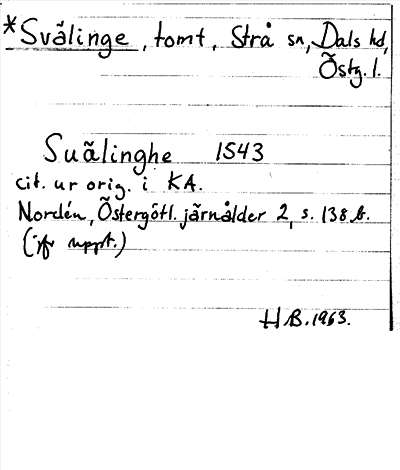 *Svälinge, tomt, Strå sn, Dals hd,
Östg. l.
Suälinghe 1543
cit. ur orig. i KA.
Nordén, Östergötl. järnålder 2, s. 138 b.
(jfr uppt.)
HB. 1963.